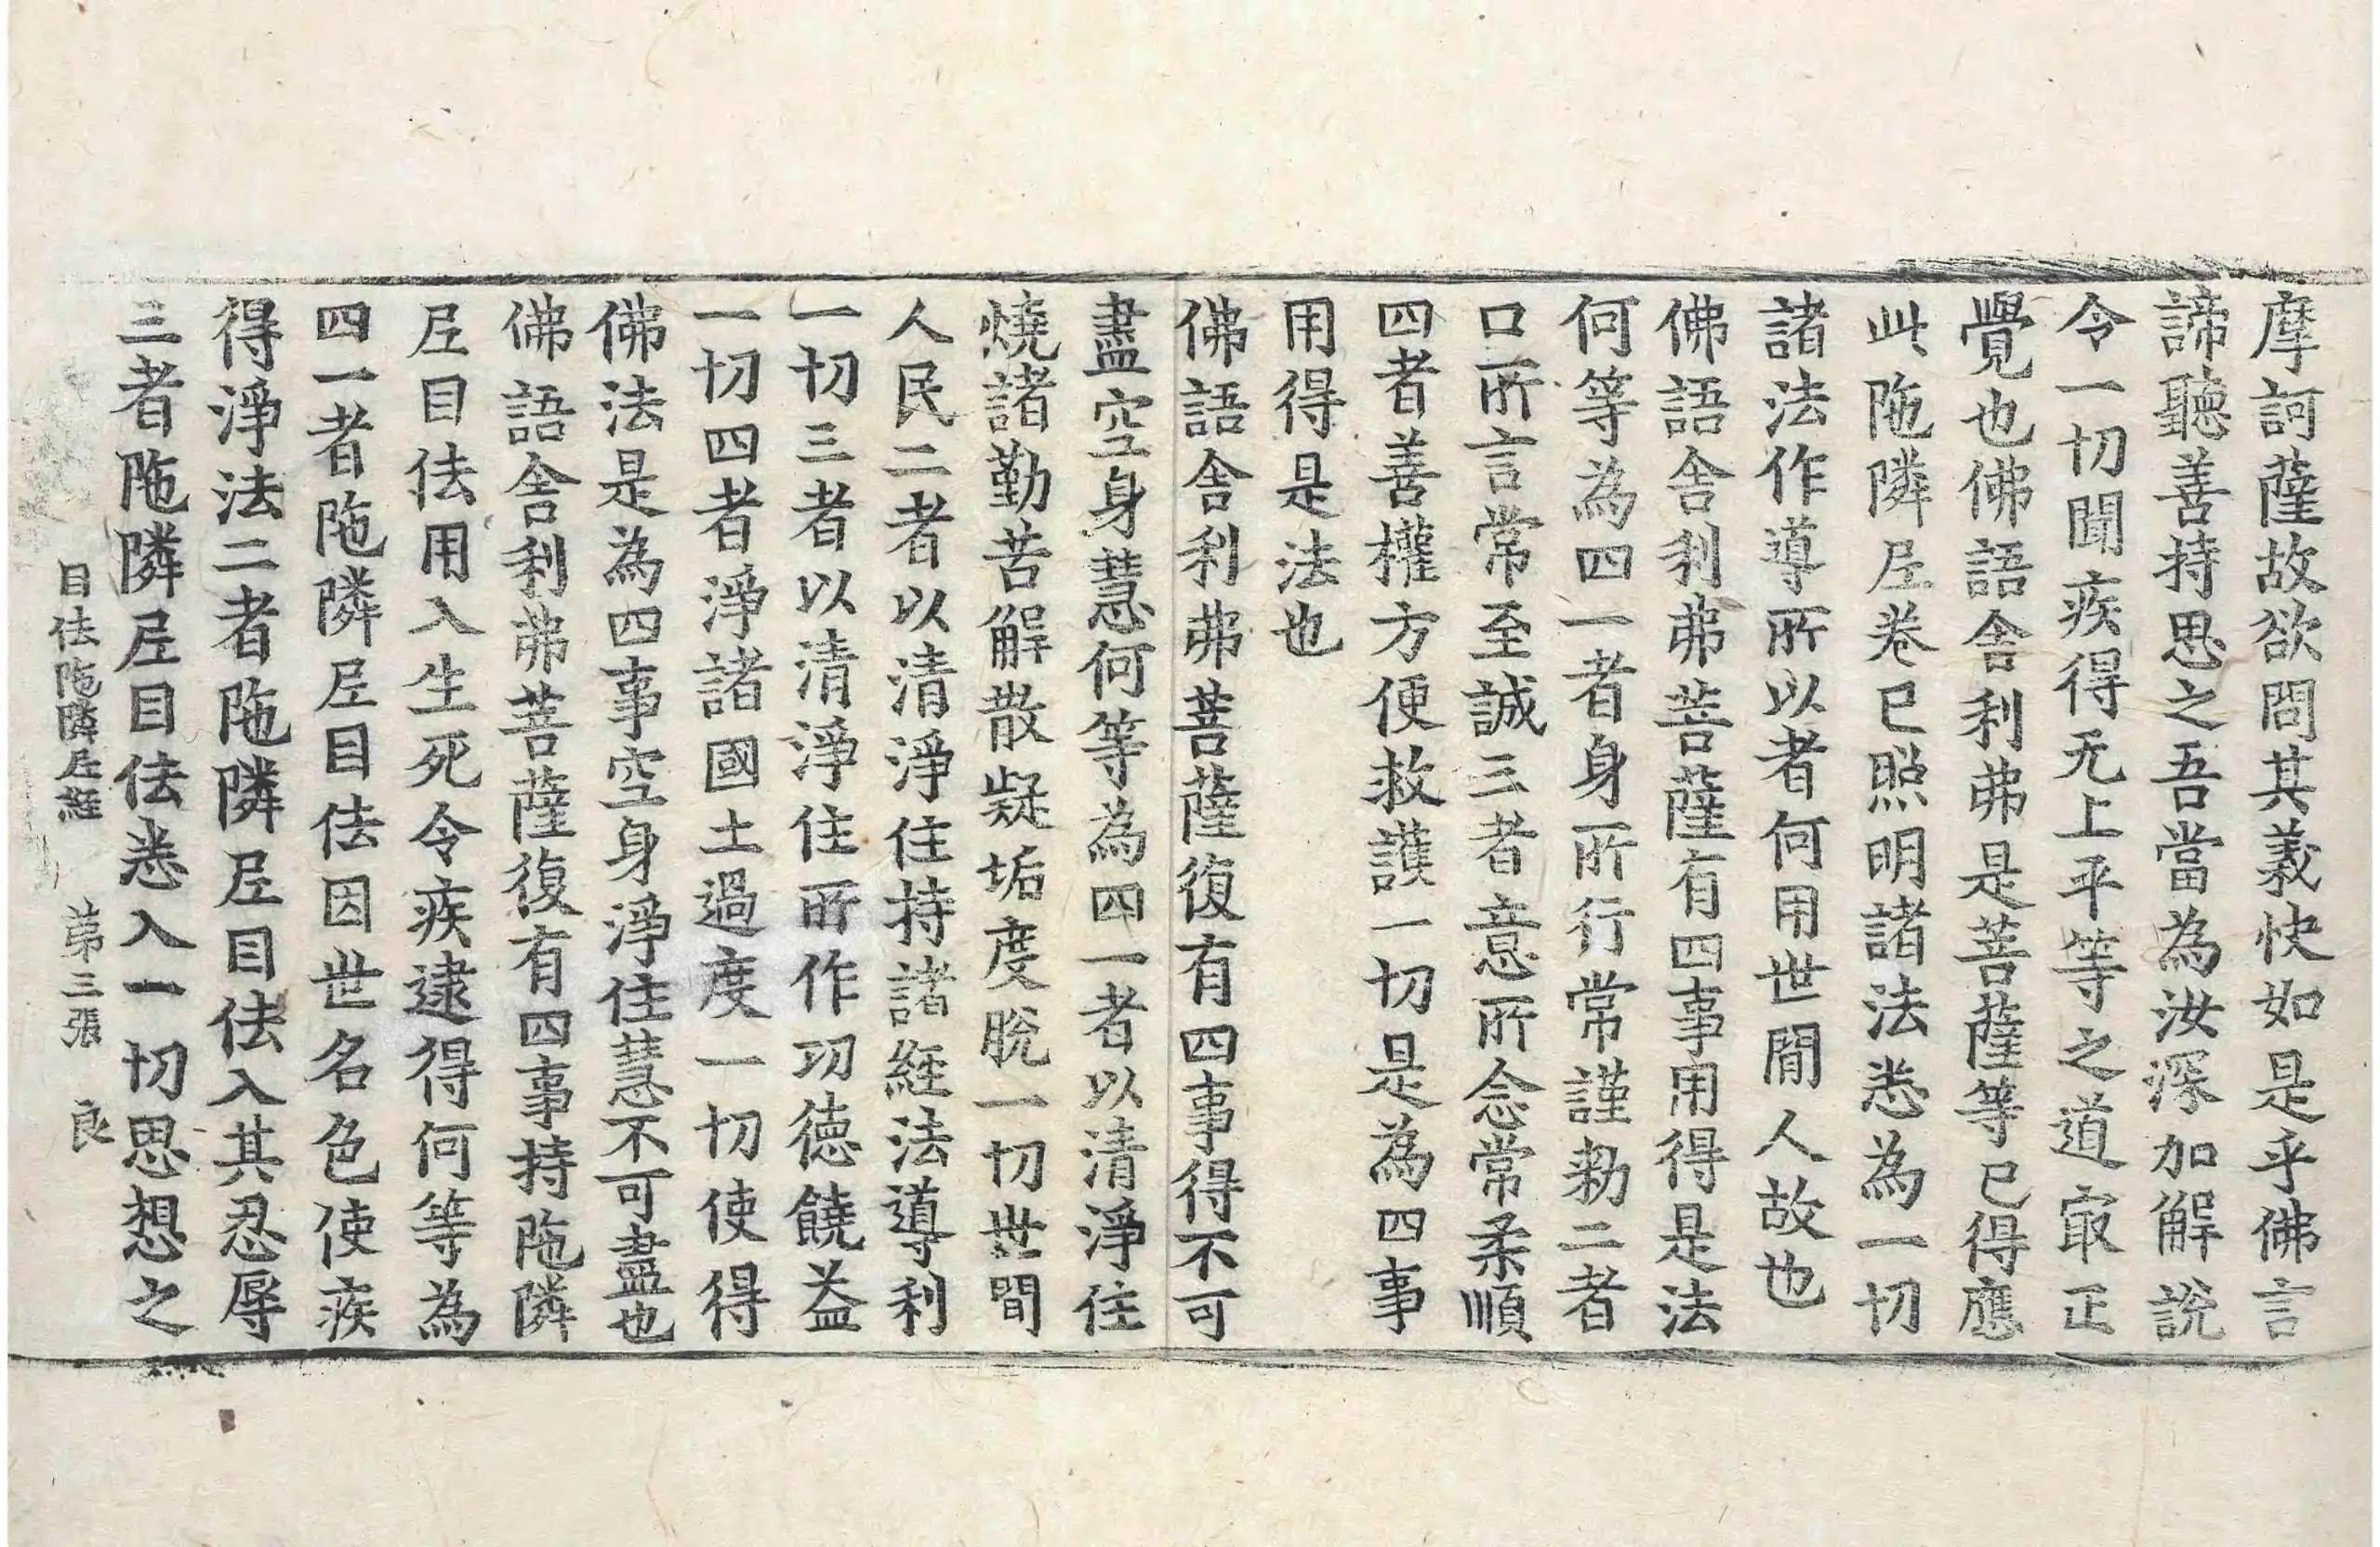 摩訶薩故欲問其義快如是乎佛言
諦聽善持思之吾當為汝深加解說
令一切聞疾得无上平等之道㝡正
覺也佛語舍利弗是菩薩等已得應
此陁隣尼卷已照明諸法悉為一切
諸法作導所以者何用世間人故也
佛語舍利弗菩薩有四事用得是法
何等為四一者身所行常謹勑二者
口所言常至誠三者意所念常柔順
四者善權方便救護一切是為四事
用得是法也
佛語舍利弗菩薩復有四事得不可
盡空身慧何等為四一者以清淨住
燒諸勤苦解散疑垢度脫一切世間
人民二者以清淨住持諸経法導利
一切三者以清淨住所作功德饒益
一切四者淨諸國土過度一切使得
佛法是為四事空身淨住慧不可盡也
佛語舍利弗菩薩復有四事持陁隣
尼目佉用入生死令疾逮得何等為
四一者陁隣尼目佉因世名色使疾
得淨法二者陁隣尼目佉入其忍辱
三者陁隣尼目佉悉入一切思想之
目佉陁隣尼経 第三張 良